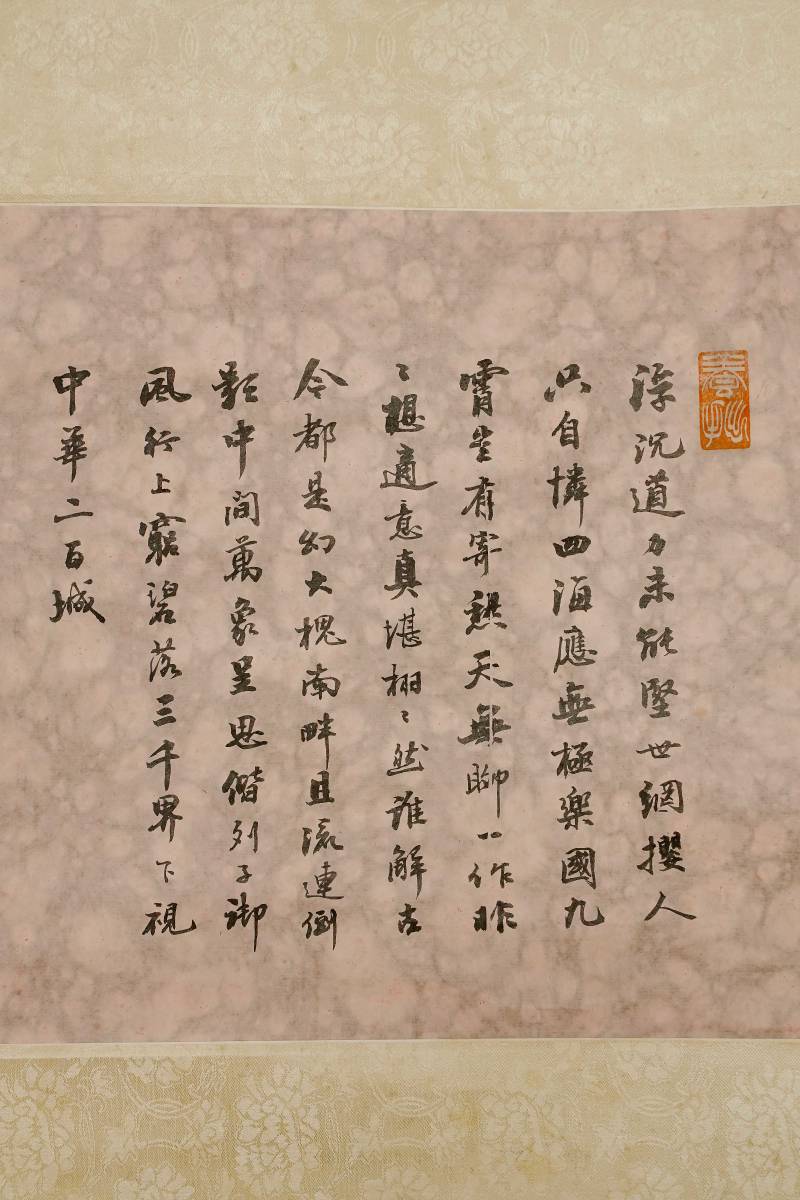 浮沉道力未能堅世網攖人
只自憐四海應無極樂國九
霄空有寄愁天無聊以作非
〻想適意真堪栩〻然誰解古
今都是幻大槐南畔且流連倒
影中間萬象呈思偕列子御
風行上窮碧落三千界下視
中華二百城